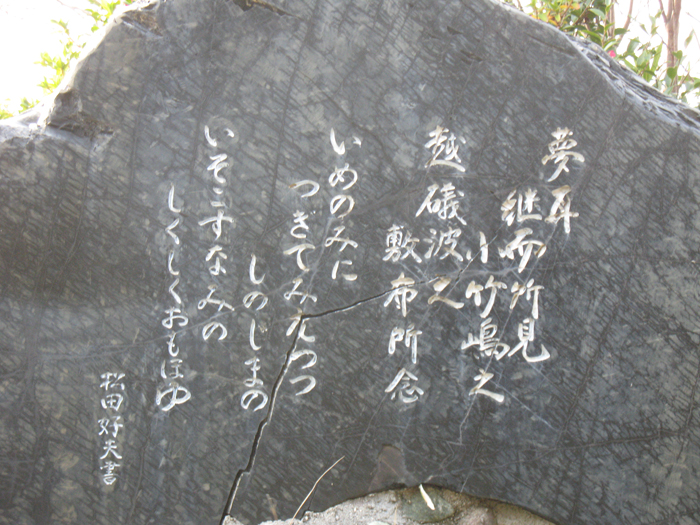 夢耳
継而所見
小竹嶋之
越礒波之
敷布所念
いめのみに
つぎてみえつつ
しのじまの
いそこすなみの
しくしくおもほゆ
松田好夫書